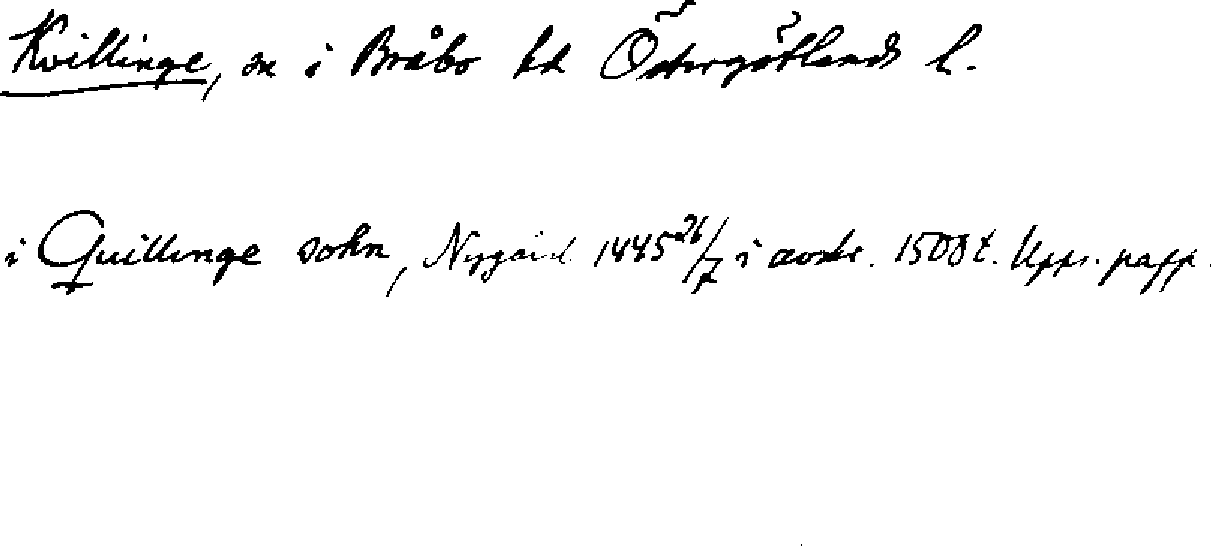 Kvillinge, sn i Bråbo hd Östergötlands l.
i Quillinge sokn, Nygård 1445 26/7 i avskr. 1500 t. Upps. papp.